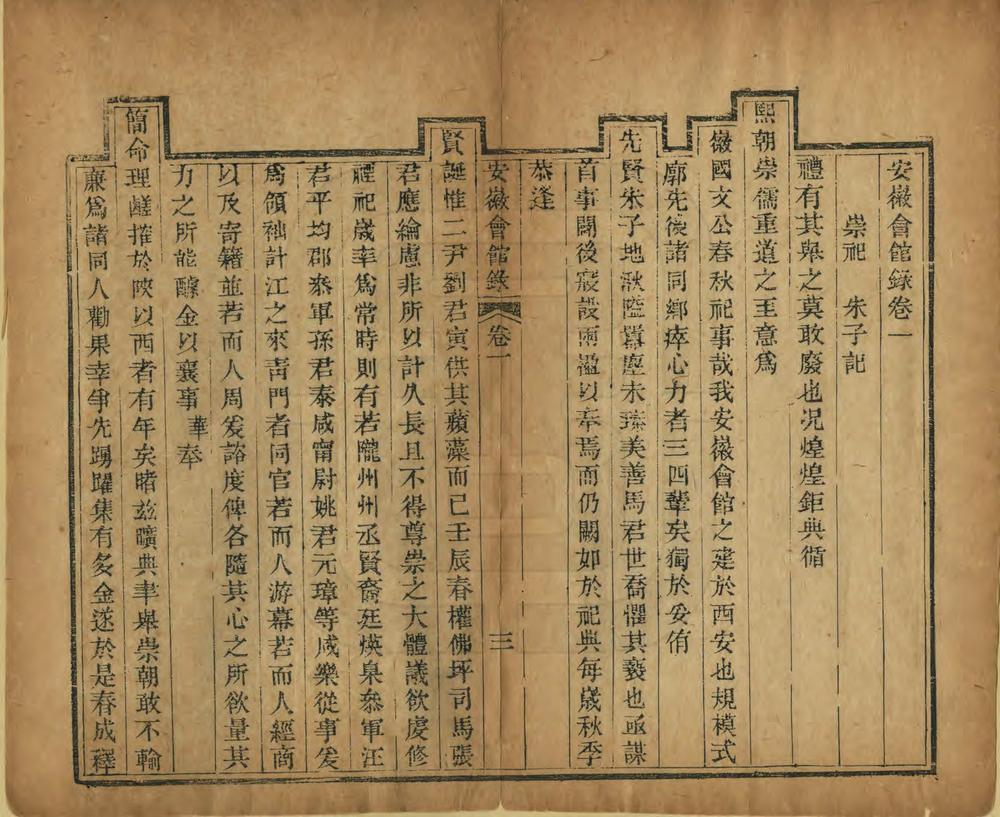 安徽會館錄卷一
崇祀　朱子記
禮有其舉之莫敢廢也况煌煌鉅典循
熙朝崇儒重道之至意爲
徽國文公春秋祀事哉我安徽會館之建於西安也規模式
廓先後諸同鄉瘁心力者三四輩矣獨於妥侑
先賢朱子地湫隘囂塵未臻美善馬君世喬懼其褻也亟謀
首事闢後寢設兩楹以奉焉而仍闕如於祀典每歲秋季
恭逢
安徽會館錄　卷一　三
賢誕惟二尹劉君寅供其蘋藻而已壬辰春權佛坪司馬張
君應綸慮非所以計久長且不得尊崇之大體議欲虔修
禋祀歲幸爲常時則有若隴州州丞賢裔廷煐臬叅軍汪
君平均郡叅軍孫君泰咸甯尉姚君元璋等咸樂從事爰
爲領袖計江之來青門者同官若而人游幕若而人經商
以及寄籍並若而人周爰諮度俾各隨其心之所欲量其
力之所能醵金以襄事華奉
簡命理鹺搉於陝以西者有年矣睹茲曠典聿舉崇朝敢不輸
廉爲諸同人勸果幸爭先踴躍集有多金遂於是春成釋